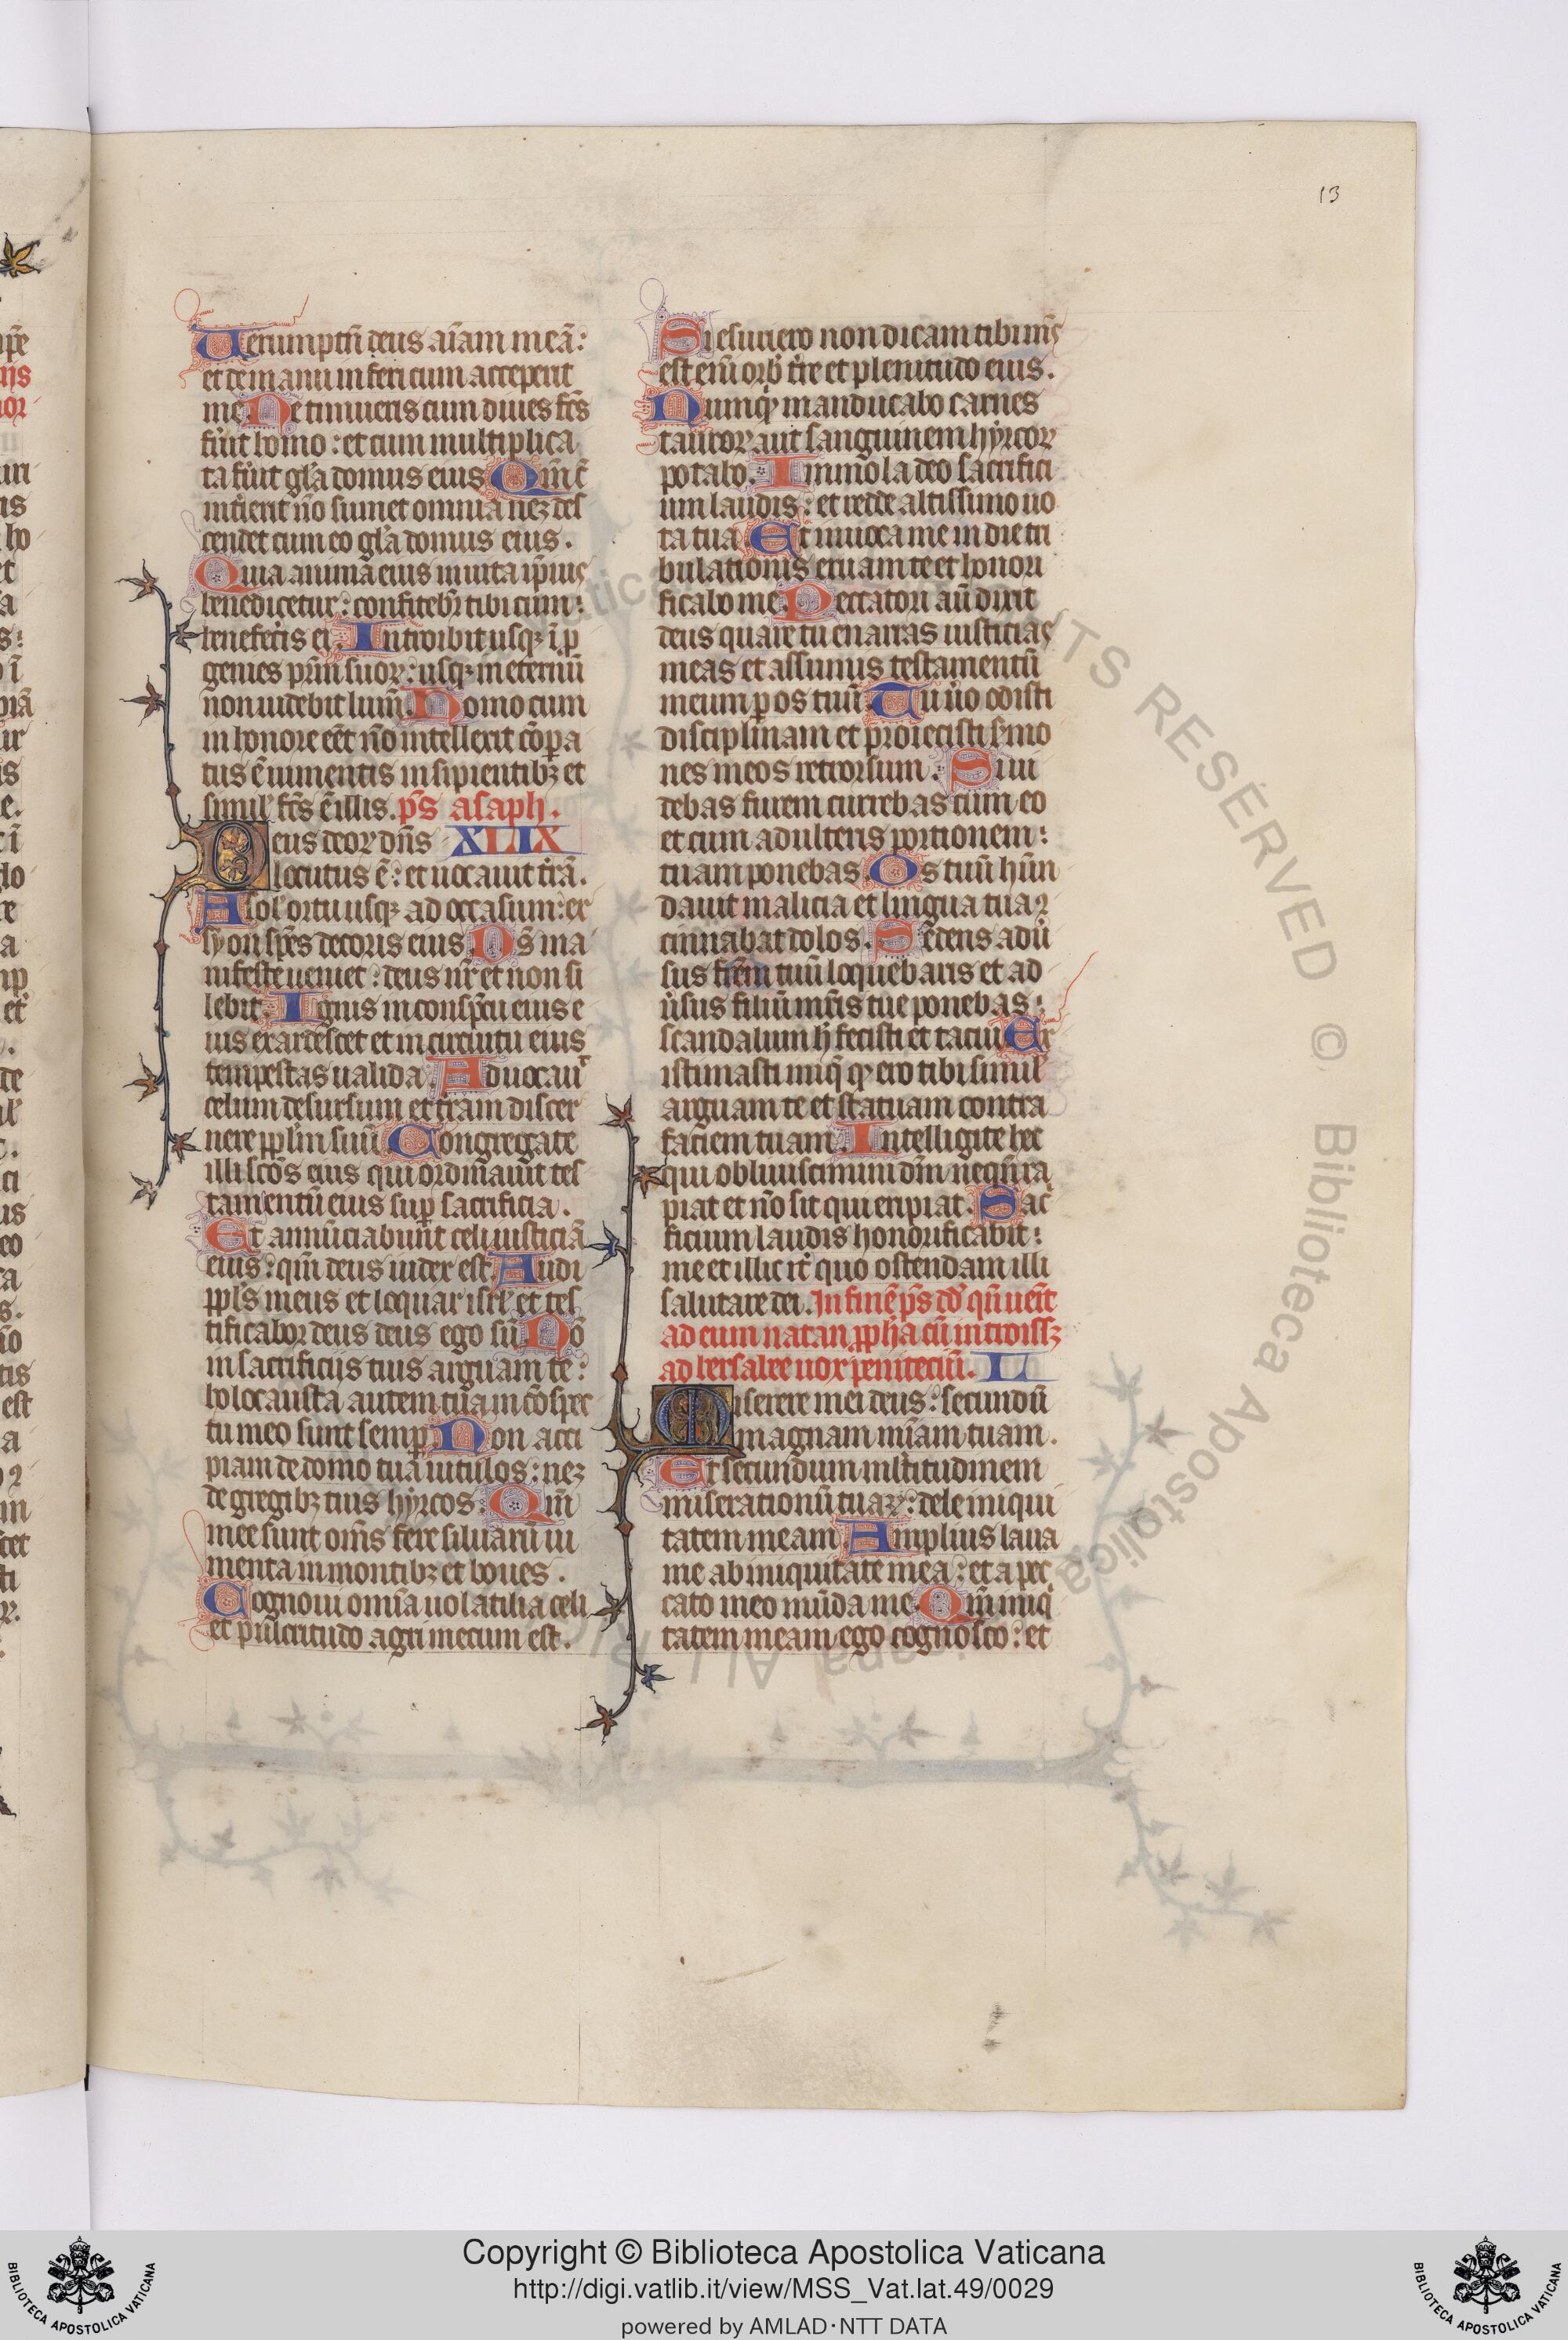 13
Uerumptn̄ deus aīam meā:
et de manu inferi cum acceperit
me. Ne timueris cum diues fc̄s
fũit homo: et cum multiplica
ta fũit gl̄a domus eius. Qm̄ c̄
intierit nō sumet omnia nez des
cendet cum eo gl̄a domus eius.
Quia anima eius in uita ip̄ius
benedicetur: confitebr̄ tibi cum:
benefecis ei. Introibit usqz ī p
genies prm̄ suoꝝ: usqz in eternū
non uidebit lum̄. Homo cum
in honore eēt nō intellexit cōpa
tus ē iumentis insipientibz et
simil' fc̄s ē illis. ps̄ asaph.
Deus deoꝝ dn̄s XLIX
locutus ē: et uocauit tr̄a.
A sol' ortu usqz ad occasum: ex
syon sp̄es decoris eius. Ds̄ ma
nifeste ueniet: deus nr̄ et non si
lebit. Ignis in consp̄cu eius e
ius exardescet et in circuitu eius
tempestas ualida. Aduocau'
celum desursum et tr̄am discer
nere ppl̄m suū. Congregate
illi scōs eius qui ordinauūt tes
tamentū eius sup sacrificia.
Et annūciabunt celi iusticiā
eius: qm̄ deus iudex est. Audi
ppl̄s meus et loquar isrl' et tes
tificabor deus deus ego sū. Nō
in sacrificiis tuis arguam te:
holocausta autem tua in cōspec
tu meo sunt semp. Non acci
piam de domo tua uitulos: nez
de gregibz tuis hyrcos: Qm̄
mee sunt om̄s fere siluarū iu
menta in montibz et boues.
Cognoui omīa uolatilia celi
et pulcritudo agri mecum est.
Si esuriero non dicam tibi m̄s
est em̄ orb' tr̄e et plenitudo eius.
Nunqͥ manducabo carnes
tauroꝝ aut sanguinem hyrcoꝝ
potabo. Immola deo sacrifici
um laudis: et redde altissimo uo
ta tua. Et inuoca me in die tri
bulationis eruam te et honori
ficabo me. Peccatori aū dixit
deus quare tu enarras iusticias
meas et assumis testamentū
meum p os tuū. Tu u͛o odisti
disciplinam et proiecisti smo
nes meos retrorsum. Si ui
debas furem currebas cum eo
et cum adulteris portionem:
tuam ponebas. Os tuū hūn
dauit malicia et lingua tua 2
cinnabat dolos. Sedens adū
sus fr̄em tuū loquebaris et ad
ũsus filiū mr̄is tue ponebas:
scandalum h̄ fecisti et tacui. Ex
istimasti iniq̄ qͥ ero tibi simil'
arguam te et statuam contra
faciem tuam. Intelligite hec
qui obliuiscimini dm̄ neqn̄ ra
piat et nō sit qui eripiat. Sac
ficium laudis honorificabit:
me et illic it' quo ostendam illi
salutare dei. In finē ps̄ dd̄ qn̄ uen̄it
ad eum natan ppha cū introissz
ad bersabee uox penitecm̄. L
Miserere mei deus: secundū
magnam mīam tuam.
Et secundum mltitudinem
miserationū tuaꝝ: dele iniqui
tatem meam. Amplius laua
me ab iniquitate mea: et a pec
cato meo mūda me. Qm̄ iniq
tatem meam ego cognosco: et
Copyright © Biblioteca Apostolica Vaticana
http://digi.vatlib.it/view/MSS_Vat.lat.49/0029
powered by AMLAD·NTT DATA